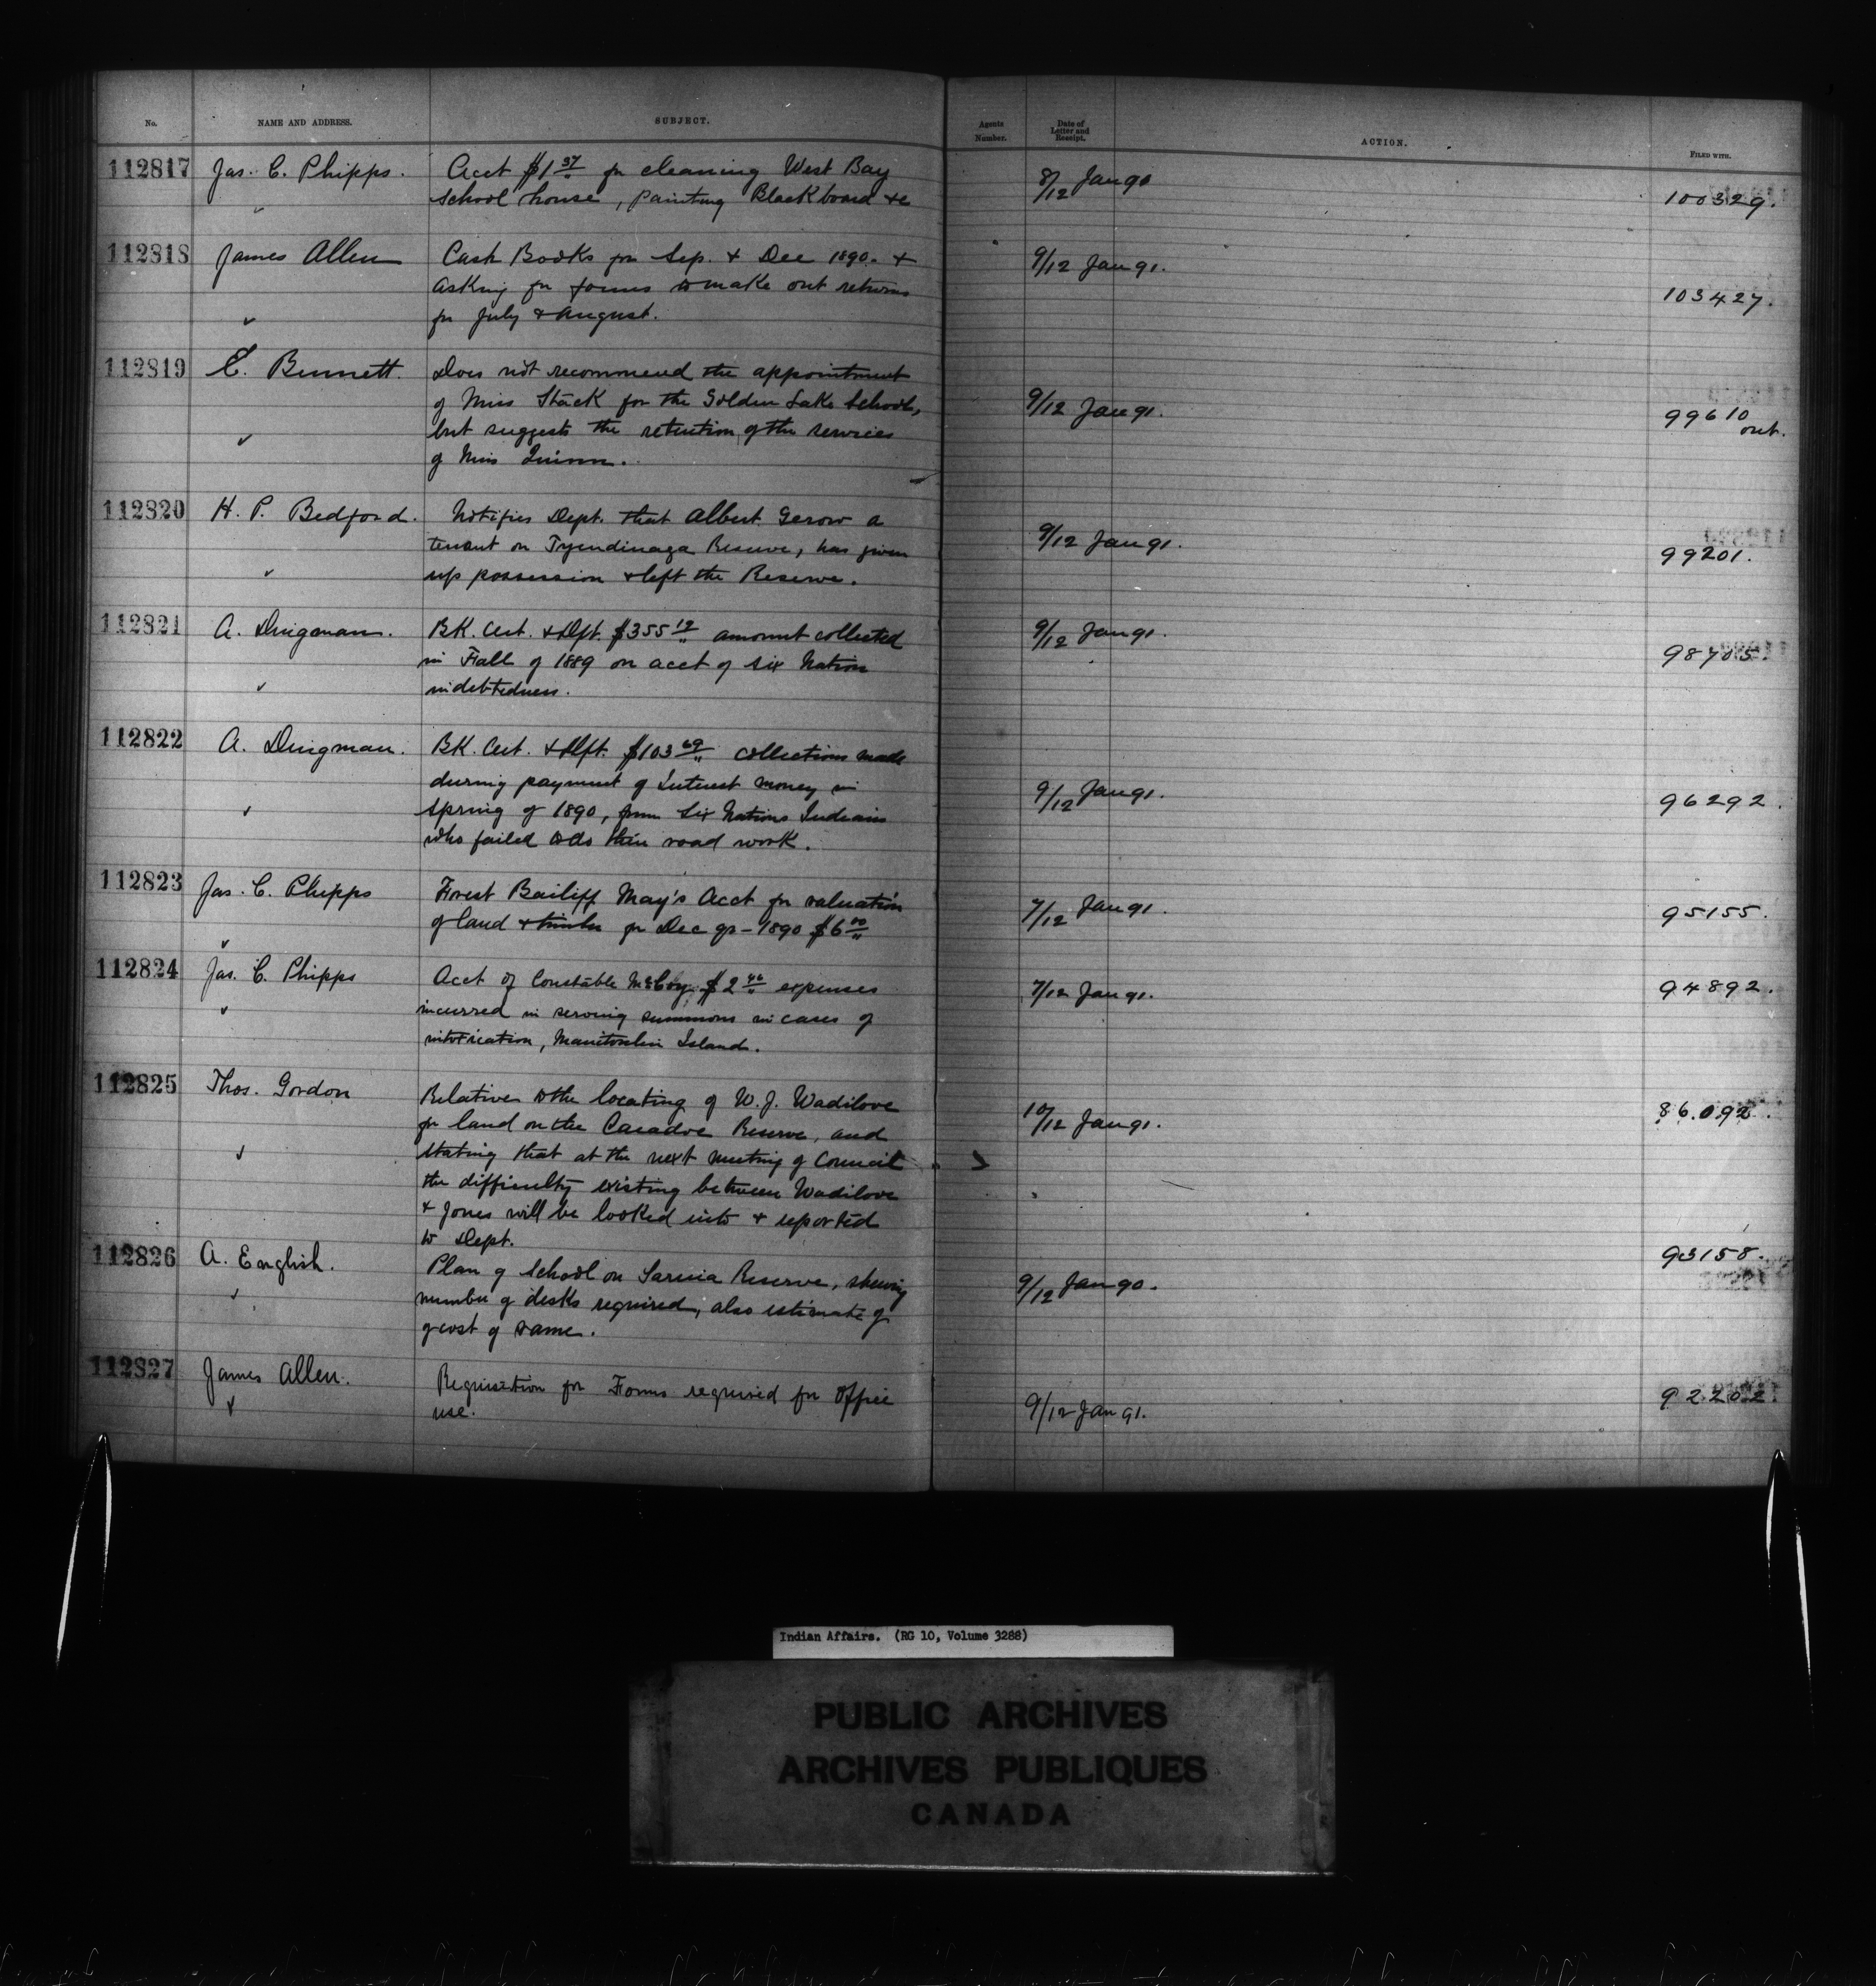 No. NAME AND ADDRESS. SUBJECT. Agents Number. Date of Letter and Receipt. ACTION. FILED WITH.
112817 Jas. C. Phipps. Acct $1 37 for cleaning West Bay 8/12 Jan 90
School house, painting Blackboard &c 100329.
112818 James Allen Cash Books for Sep. & Dec 1890. & 9/12 Jan 91.
asking for forms to make out returns 103427.
for July & August.
112819 E. Bennett. Does not recommend the appointment
of Miss Stack for the Golden Lake School, 9/12 Jan 91. 99610
but suggests the retention of the services out.
of Miss Quinn.
112820 H. P. Bedford. Notifies Dept. that Albert Gerow a
tenant on Tyendinaga Reserve, has given 9/12 Jan 91. 99201.
up possession & left the Reserve.
112821 A. Dingman. BK. Cert. & Dft. $355 12 amount collected 9/12 Jan 91.
in Fall of 1889 on acct of Six Nation 98705.
indebtedness.
112822 A. Dingman. BK. Cert. & Dft. $103 69 collections made
during payment of Interest money in 9/12 Jan 91.
Spring of 1890, from Six Nations Indians 96292.
who failed to do their road work.
112823 Jas. C. Phipps Forest Bailiff May's Acct for valuation 7/12 Jan 91.
of land & timber for Dec qr - 1890 $6 00 95155.
112824 Jas. C. Phipps Acct of Constable McCoy $2 46 expenses 7/12 Jan 91. 94892.
incurred in serving summons in cases of
intoxication, Manitoulin Island.
112825 Thos. Gordon Relative to the locating of W. J. Wadilove
for land on the Caradoc Reserve, and 10/12 Jan 91. 86.092.
stating that at the next meeting of Council
the difficulty existing between Wadilove
& Jones will be looked into & reported
to Dept.
112826 A. English. Plan of School on Sarnia Reserve, shewing 93158.
number of desks required, also estimate of 9/12 Jan 90.
of cost of same.
112827 James Allen. Requisition for Forms required for Office 92202.
use. 9/12 Jan 91.
Indian Affairs. (RG 10, Volume 3288)
PUBLIC ARCHIVES
ARCHIVES PUBLIQUES
CANADA